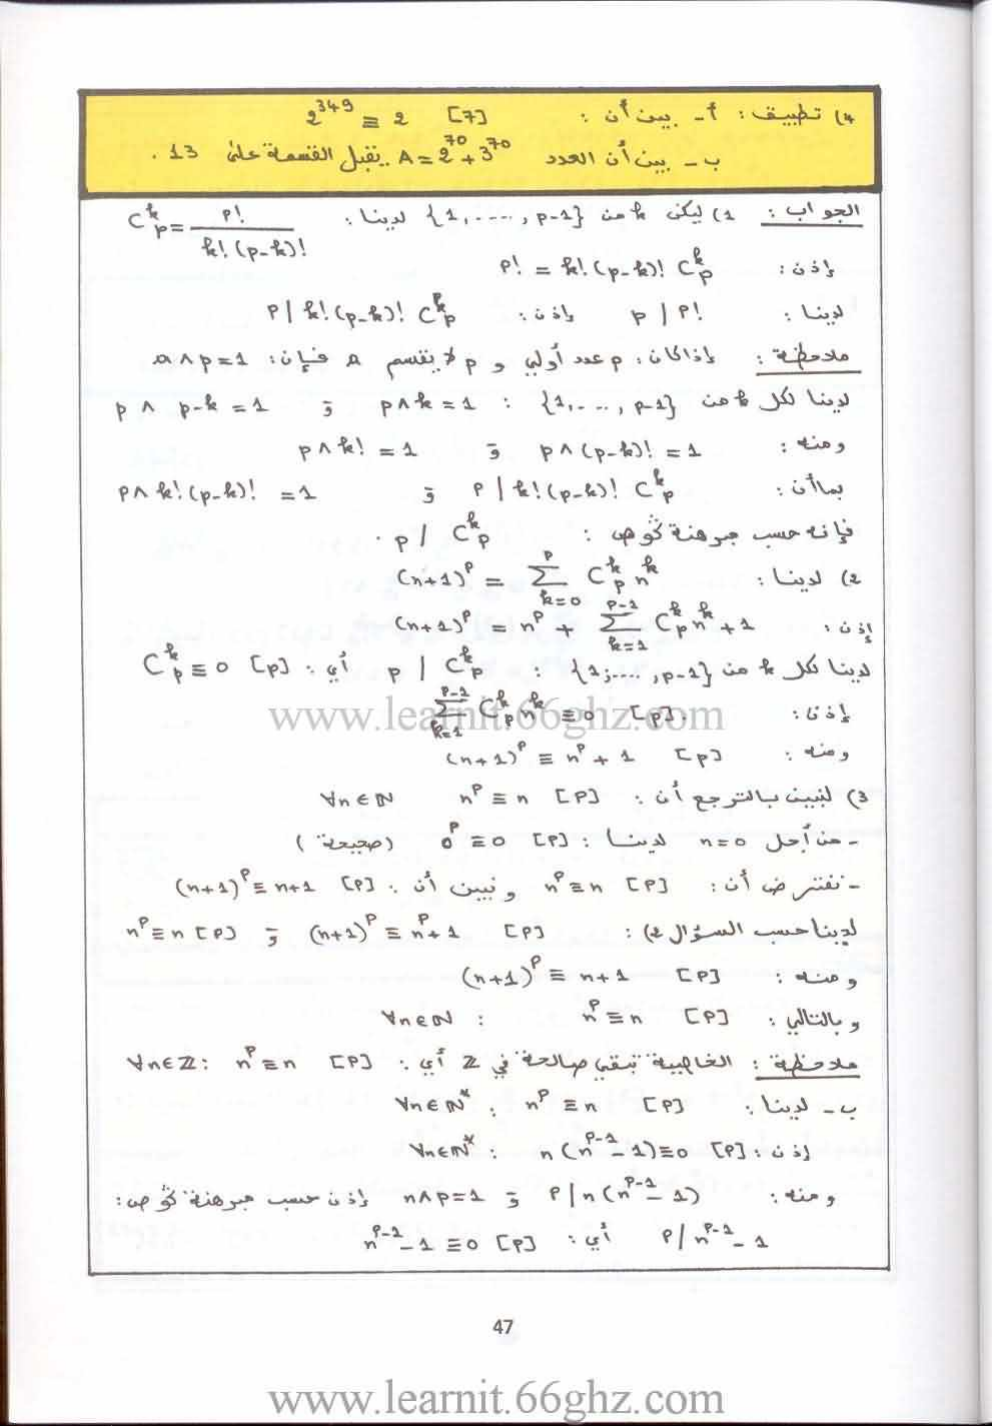 4) تطبيق : أ - بين أن : 2^349 ≡ 2 [7]
ب - بين أن العدد A = 2^70 + 3^70 يقبل القسمة على 13 .
الجواب : 1) ليكن k من {1,....,p-1} لدينا : C_p^k = p! / k!(p-k)!
إذن : p! = k!(p-k)! C_p^k
لدينا : p | p! إذن : p | k!(p-k)! C_p^k
ملاحظة : إذا كان : p عدد أولي و p لا يقسم a فإن : a∧p=1
لدينا لكل k من {1,...,p-1} : p∧k=1 و p∧p-k=1
ومنه : p∧(p-k)!=1 و p∧k!=1
بما أن : p | k!(p-k)! C_p^k و p∧k!(p-k)!=1
فإنه حسب مبرهنة گوص : p | C_p^k .
2) لدينا : (n+1)^p = Σ_{k=0}^{p} C_p^k n^k
إذن : (n+1)^p = n^p + Σ_{k=1}^{p-1} C_p^k n^k + 1
لدينا لكل k من {1,....,p-1} : p | C_p^k أي : C_p^k ≡ 0 [p]
إذن : Σ_{k=1}^{p-1} C_p^k n^k ≡ 0 [p].
www.learnit.66ghz.com
ومنه : (n+1)^p ≡ n^p + 1 [p]
3) لنبين بالترجع أن : n^p ≡ n [p] ∀n∈ℕ
- من أجل n=0 لدينا : 0^p ≡ 0 [p] (صحيحة)
- نفترض أن : n^p ≡ n [p] ونبين أن : (n+1)^p ≡ n+1 [p]
لدينا حسب السؤال 2) : (n+1)^p ≡ n^p+1 [p] و n^p ≡ n [p]
ومنه : (n+1)^p ≡ n+1 [p]
وبالتالي : n^p ≡ n [p] : ∀n∈ℕ
ملاحظة : الخاصية تبقى صالحة في ℤ أي : ∀n∈ℤ : n^p ≡ n [p]
ب - لدينا : ∀n∈ℕ* : n^p ≡ n [p]
إذن : ∀n∈ℕ* : n(n^{p-1} - 1) ≡ 0 [p]
ومنه : p | n(n^{p-1} - 1) و n∧p=1 إذن حسب مبرهنة گوص :
p | n^{p-1} - 1 أي : n^{p-1} - 1 ≡ 0 [p]
47
www.learnit.66ghz.com